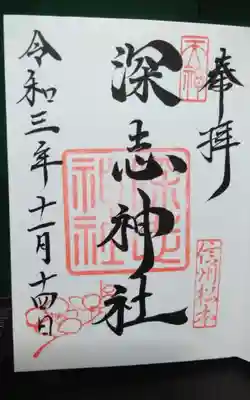 奉拝
天神
深志神社
深志
神社
信州松本
令和三年十一月十四日